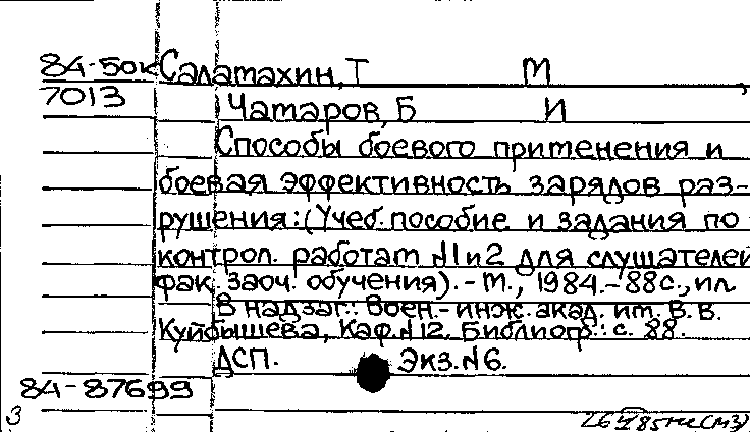 84-50к Салатахин, Т М
7013 Чатаров, Б И
Способы боевого применения и
боевая эффективность зарядов раз-
рушения: (Учеб. пособие и задания по
контрол. работам №1и2 для слушателей
фак. заоч. обучения). - М., 1984. - 88с., ил.
В надзаг.: Воен.- инж. акад. им. В. В.
Куйбышева, Каф. №12. Библиогр.: с. 88.
ДСП. Экз. №6.
84-87699
3